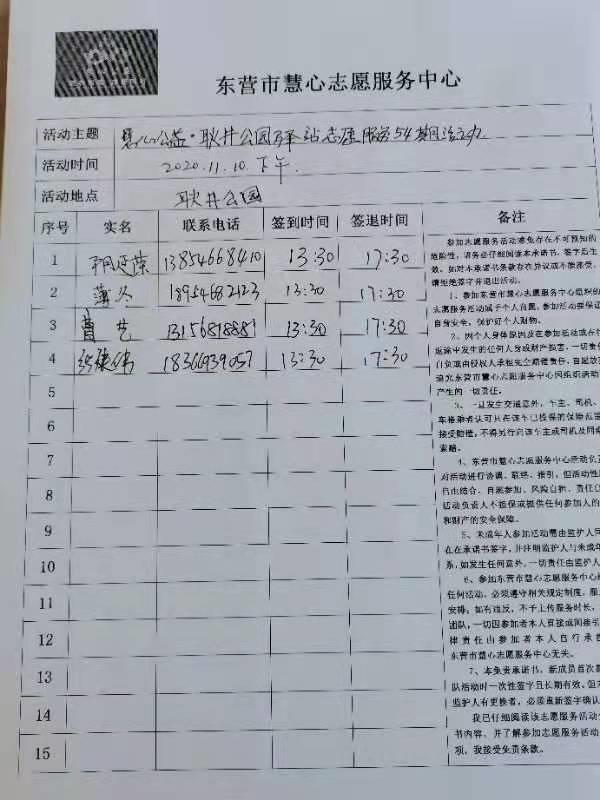 东营市慧心志愿服务中心
活动主题 慧心公益·耿井公园驿站志愿服务54期活动
活动时间 2020.11.10.下午.
活动地点 耿井公园
序号 实名 联系电话 签到时间 签退时间 备注
1 13854668410 13:30 17:30
2 薄冬 18954682123 13:30 17:30
3 曹艺 13156818881 13:30 17:30
4 18366939057 13:30 17:30
5
6
7
8
9
10
11
12
13
14
15
参加志愿服务活动难免存在不可预知的
危险性，请务必仔细阅读本承诺书，签字后生
效。如对本承诺书条款存在异议或不能接受，
请拒绝签字并退出活动。
1、参加东营市慧心志愿服务中心组织的
志愿服务活动属于个人自愿，参加活动要保证
自身安全，保护好个人财物。
2、因个人身体原因及在参加活动或在往
返途中发生的任何人身或财产损害，一切责任
自负或由侵权人承担完全赔偿责任，自愿放弃
追究东营市慧心志愿服务中心因组织活动
产生的一切责任。
3、一旦发生交通意外，车主、司机、
车搭乘者认可只在该车已投保的保险范围
接受赔偿，不得另行向该车主或司机及同乘
索赔。
4、东营市慧心志愿服务中心活动负责
对活动进行协调、联络、指引，但活动性质
自由结合、自愿参加、风险自担、责任自
活动负责人不担保或提供任何参加人的
和财产的安全保障。
5、未成年人参加活动需由监护人同
在在承诺书签字，并注明监护人与未成年
系，如发生任何意外，一切责任由监护人
6、参加东营市慧心志愿服务中心组
任何活动，必须遵守相关规定制度，服
安排；如有违反，不予上传服务时长，
团队，一切因参加者本人直接或间接引
律责任由参加者本人自行承担
东营市慧心志愿服务中心无关。
7、本免责承诺书，新成员首次参
队活动时一次性签字且长期有效，但未
监护人有更换者，必须重新签字确认
我已仔细阅读该志愿服务活动
书内容，并了解参加志愿服务活动
项，我接受免责条款。